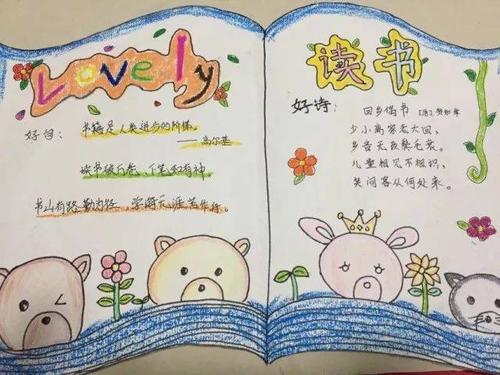 Lovely
好句：
书籍是人类进步的阶梯。
——高尔基
读书破万卷，下笔如有神
书山有路勤为径，学海无涯苦作舟。
读书
好诗：
回乡偶书 [唐]贺知章
少小离家老大回，
乡音无改鬓毛衰。
儿童相见不相识，
笑问客从何处来。